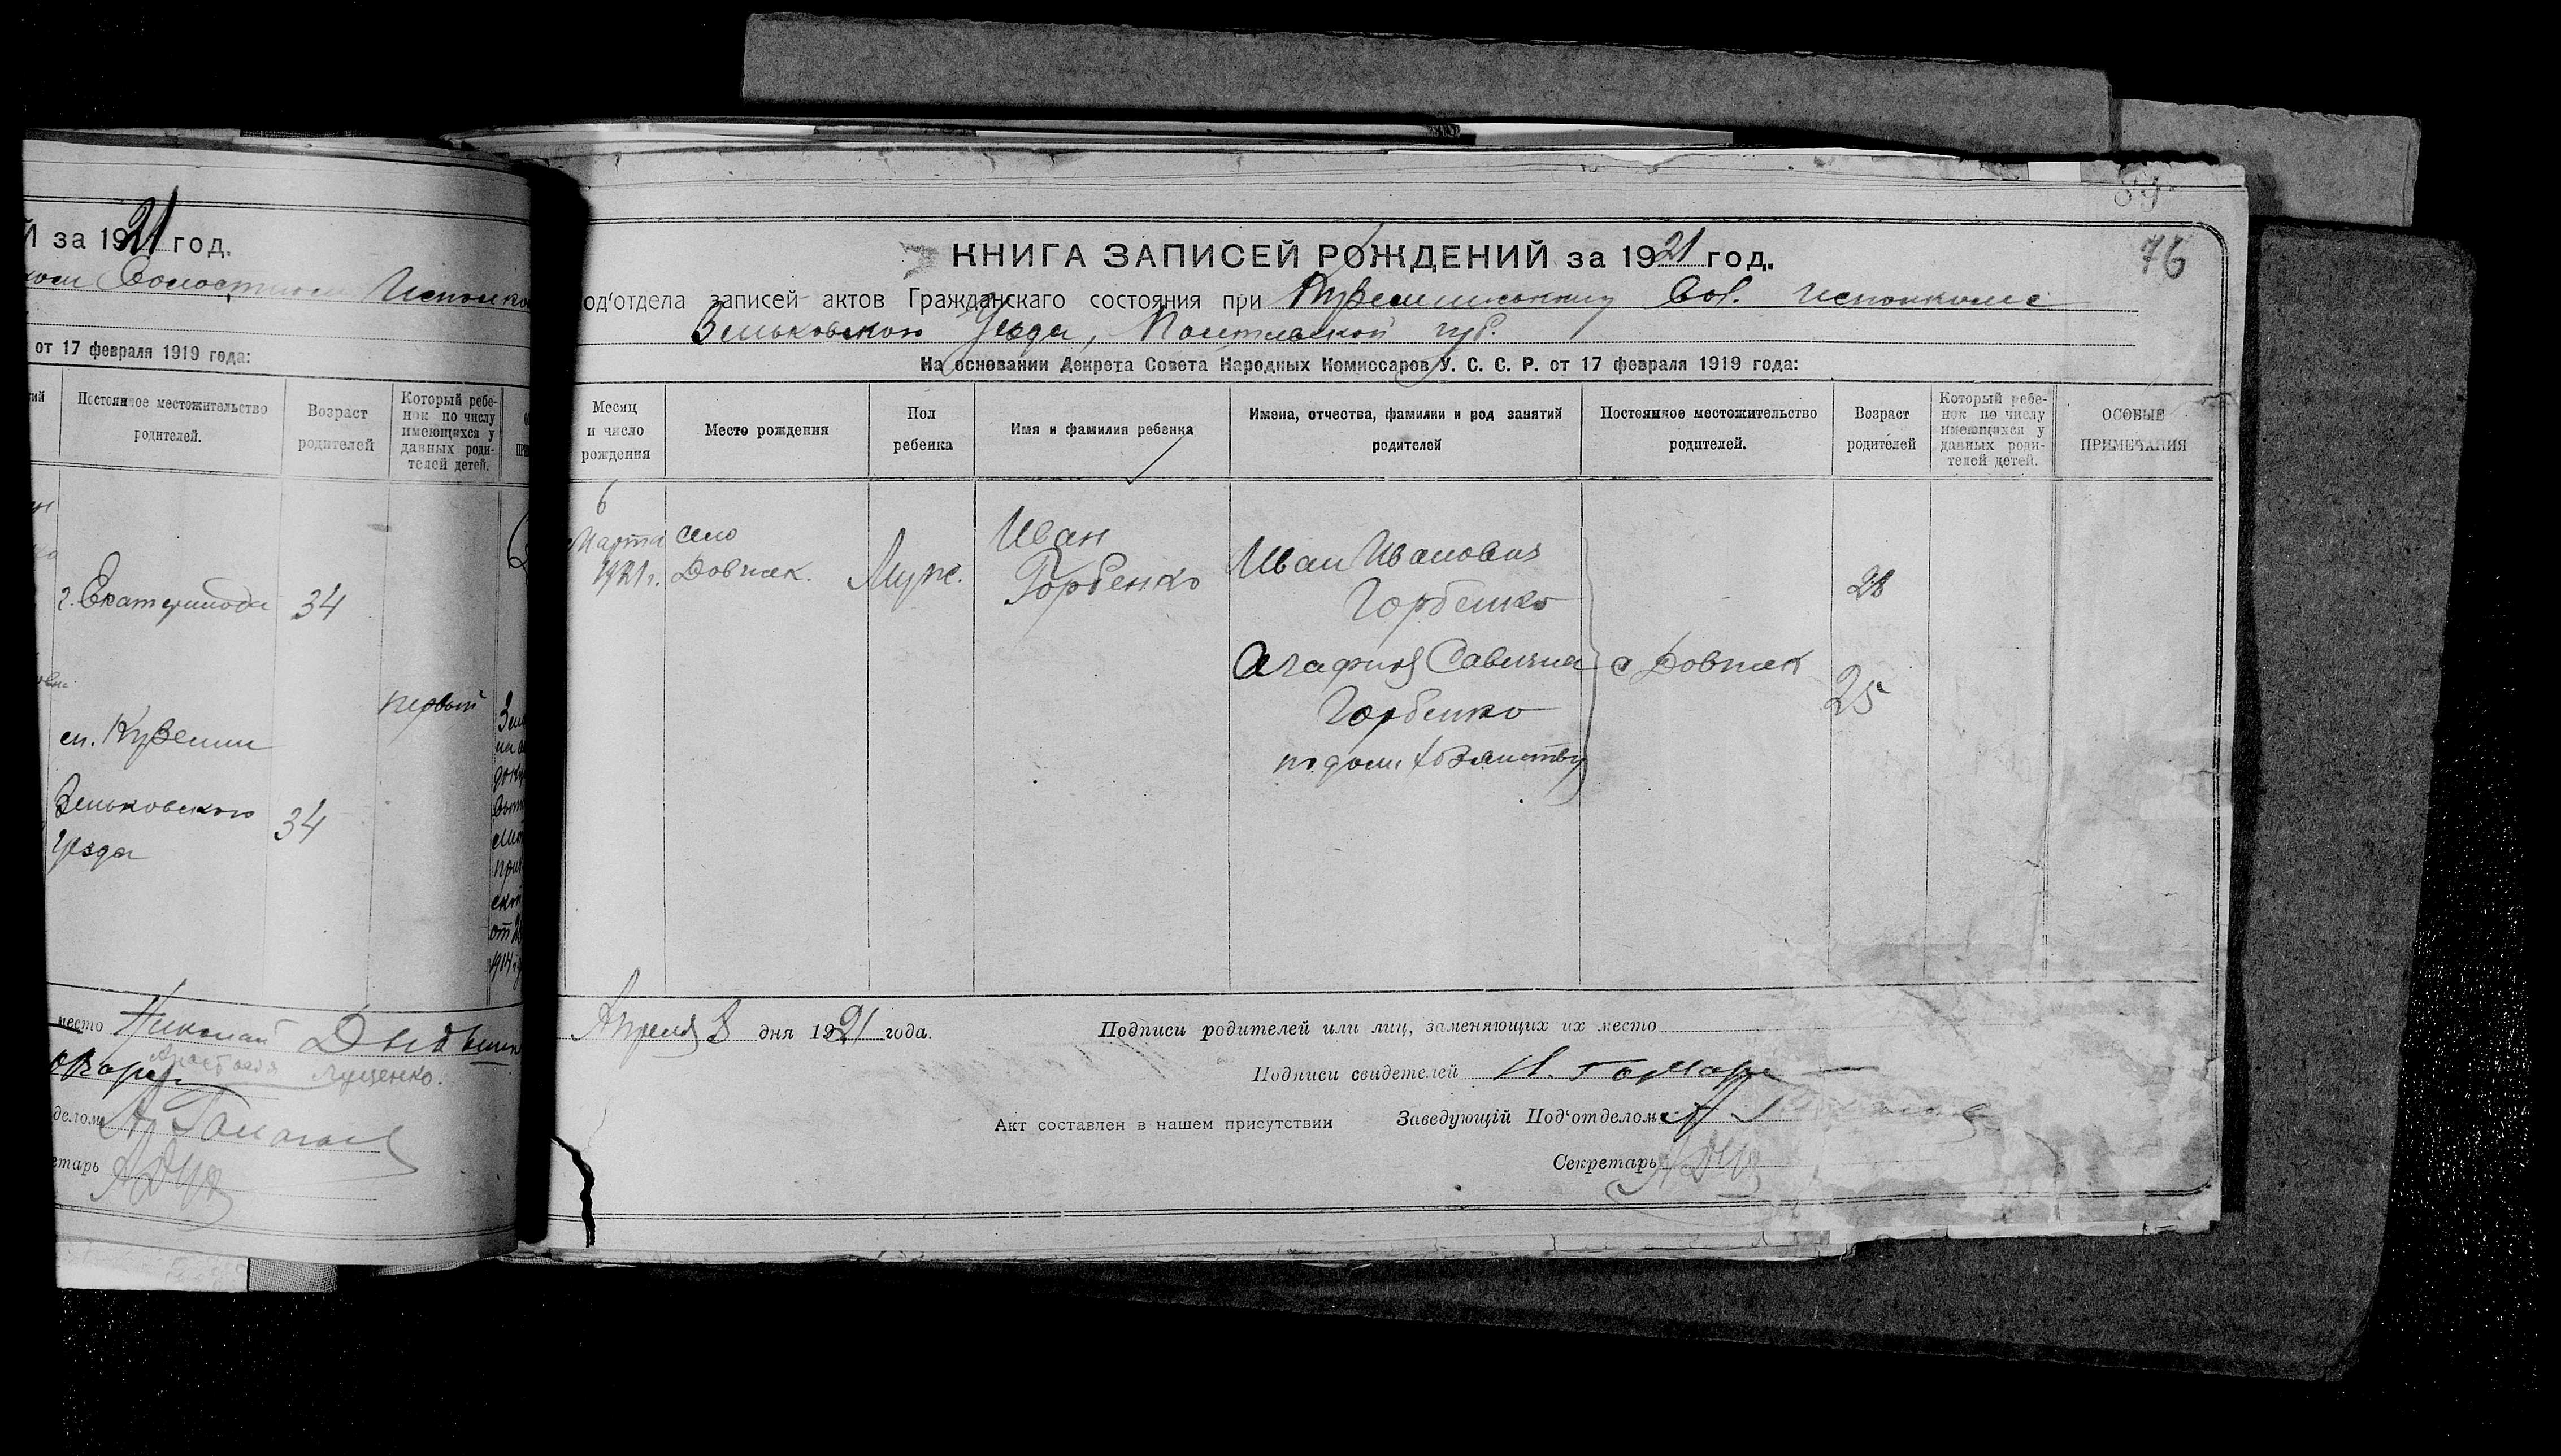 Й за 1921 год.
Волостном Исполко
от 17 февраля 1919 года:
Постоянное местожительство
родителей.
Возраст
родителей
Который ребе-
нок по числу
имеющихся у
данных роди-
телей детей.
г. Екатеринода 34
первый
см. Куземин
Зеньковского 34
Уезда
место Николай
Лущенко.
делом
етарь
89
76
КНИГА ЗАПИСЕЙ РОЖДЕНИЙ за 1921 год.
од'отдела записей актов Гражданскаго состояния при Вол. исполкоме
Зеньковского Уезда, Полтавской губ.
На основании Декрета Совета Народных Комиссаров У. С. С. Р. от 17 февраля 1919 года:
Месяц
и число
рождения
Место рождения
Пол
ребенка
Имя и фамилия ребенка
Имена, отчества, фамилии и род занятий
родителей
Постоянное местожительство
родителей.
Возраст
родителей
Который ребе-
нок по числу
имеющихся у
данных роди-
телей детей.
ОСОБЫЕ
ПРИМЕЧАНИЯ
6
Марта
1921 г.
село
Довжек.
Муж.
Иван
Горбенко
Иван Иванович
Горбенко
Агафия Савична
Горбенко
по дом хозяйству
с Довжек
28
25
Апреля 3 дня 1921 года.
Подписи родителей или лиц, заменяющих их место
Подписи свидетелей И. Гончар
Акт составлен в нашем присутствии Заведующій Под'отделом
Секретарь